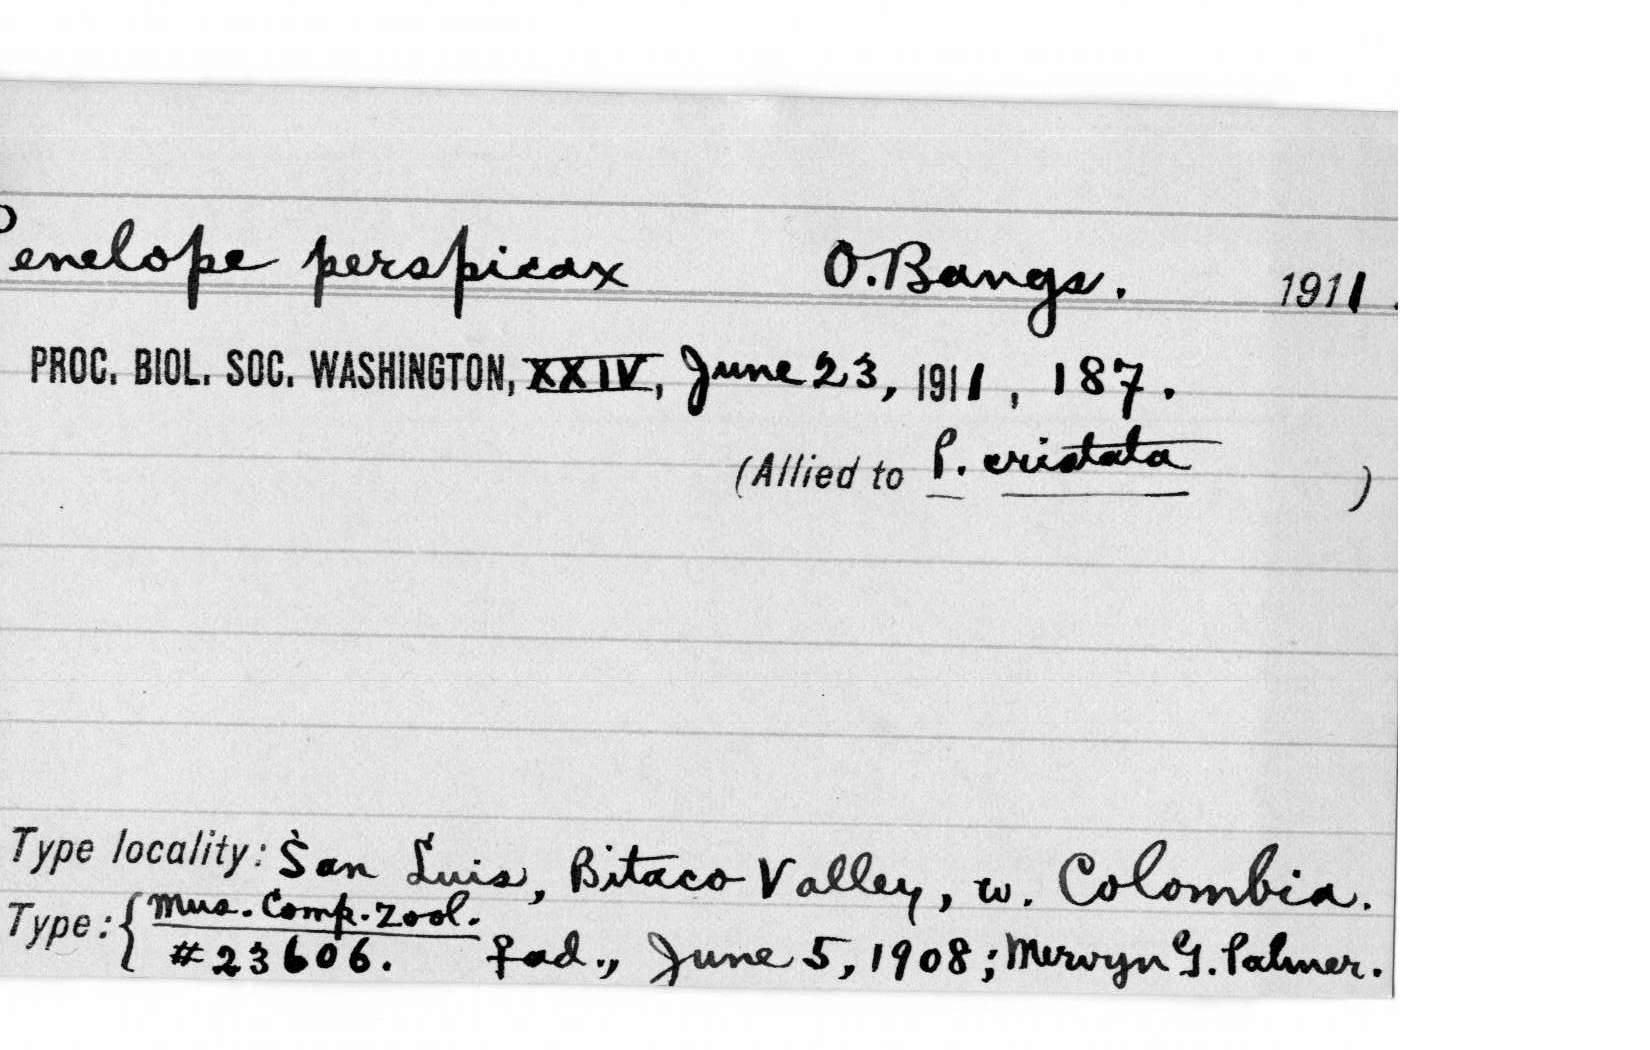 Penelope perspicax O. Bangs. 1911.
PROC. BIOL. SOC. WASHINGTON, XXIV, June 23, 1911, 187.
(Allied to P. cristata )
Type locality: San Luis, Bitaco Valley, w. Colombia.
Type: { Mus. Comp. Zool.
#23606. ♀ ad., June 5, 1908; Mervyn G. Palmer.